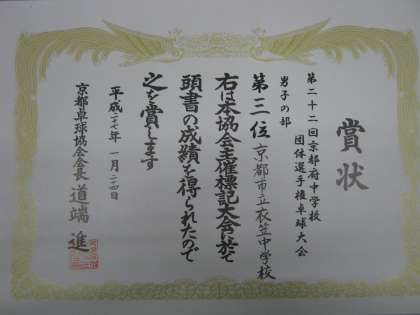 賞状
第二十二回京都府中学校
団体選手権卓球大会
男子の部
第三位 京都市立衣笠中学校
右は本協会主催標記大会に於て
頭書の成績を得られたので
之を賞します
平成二七年一月二四日
京都卓球協会会長 道端進